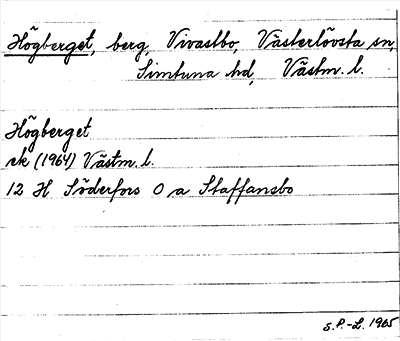 Högberget, berg, Vivastbo, Västerlövsta sn,
Simtuna hd, Västm. l.
Högberget
ek (1964) Västm. l.
12 H Söderfors O a Staffansbo
S.P.-L. 1965